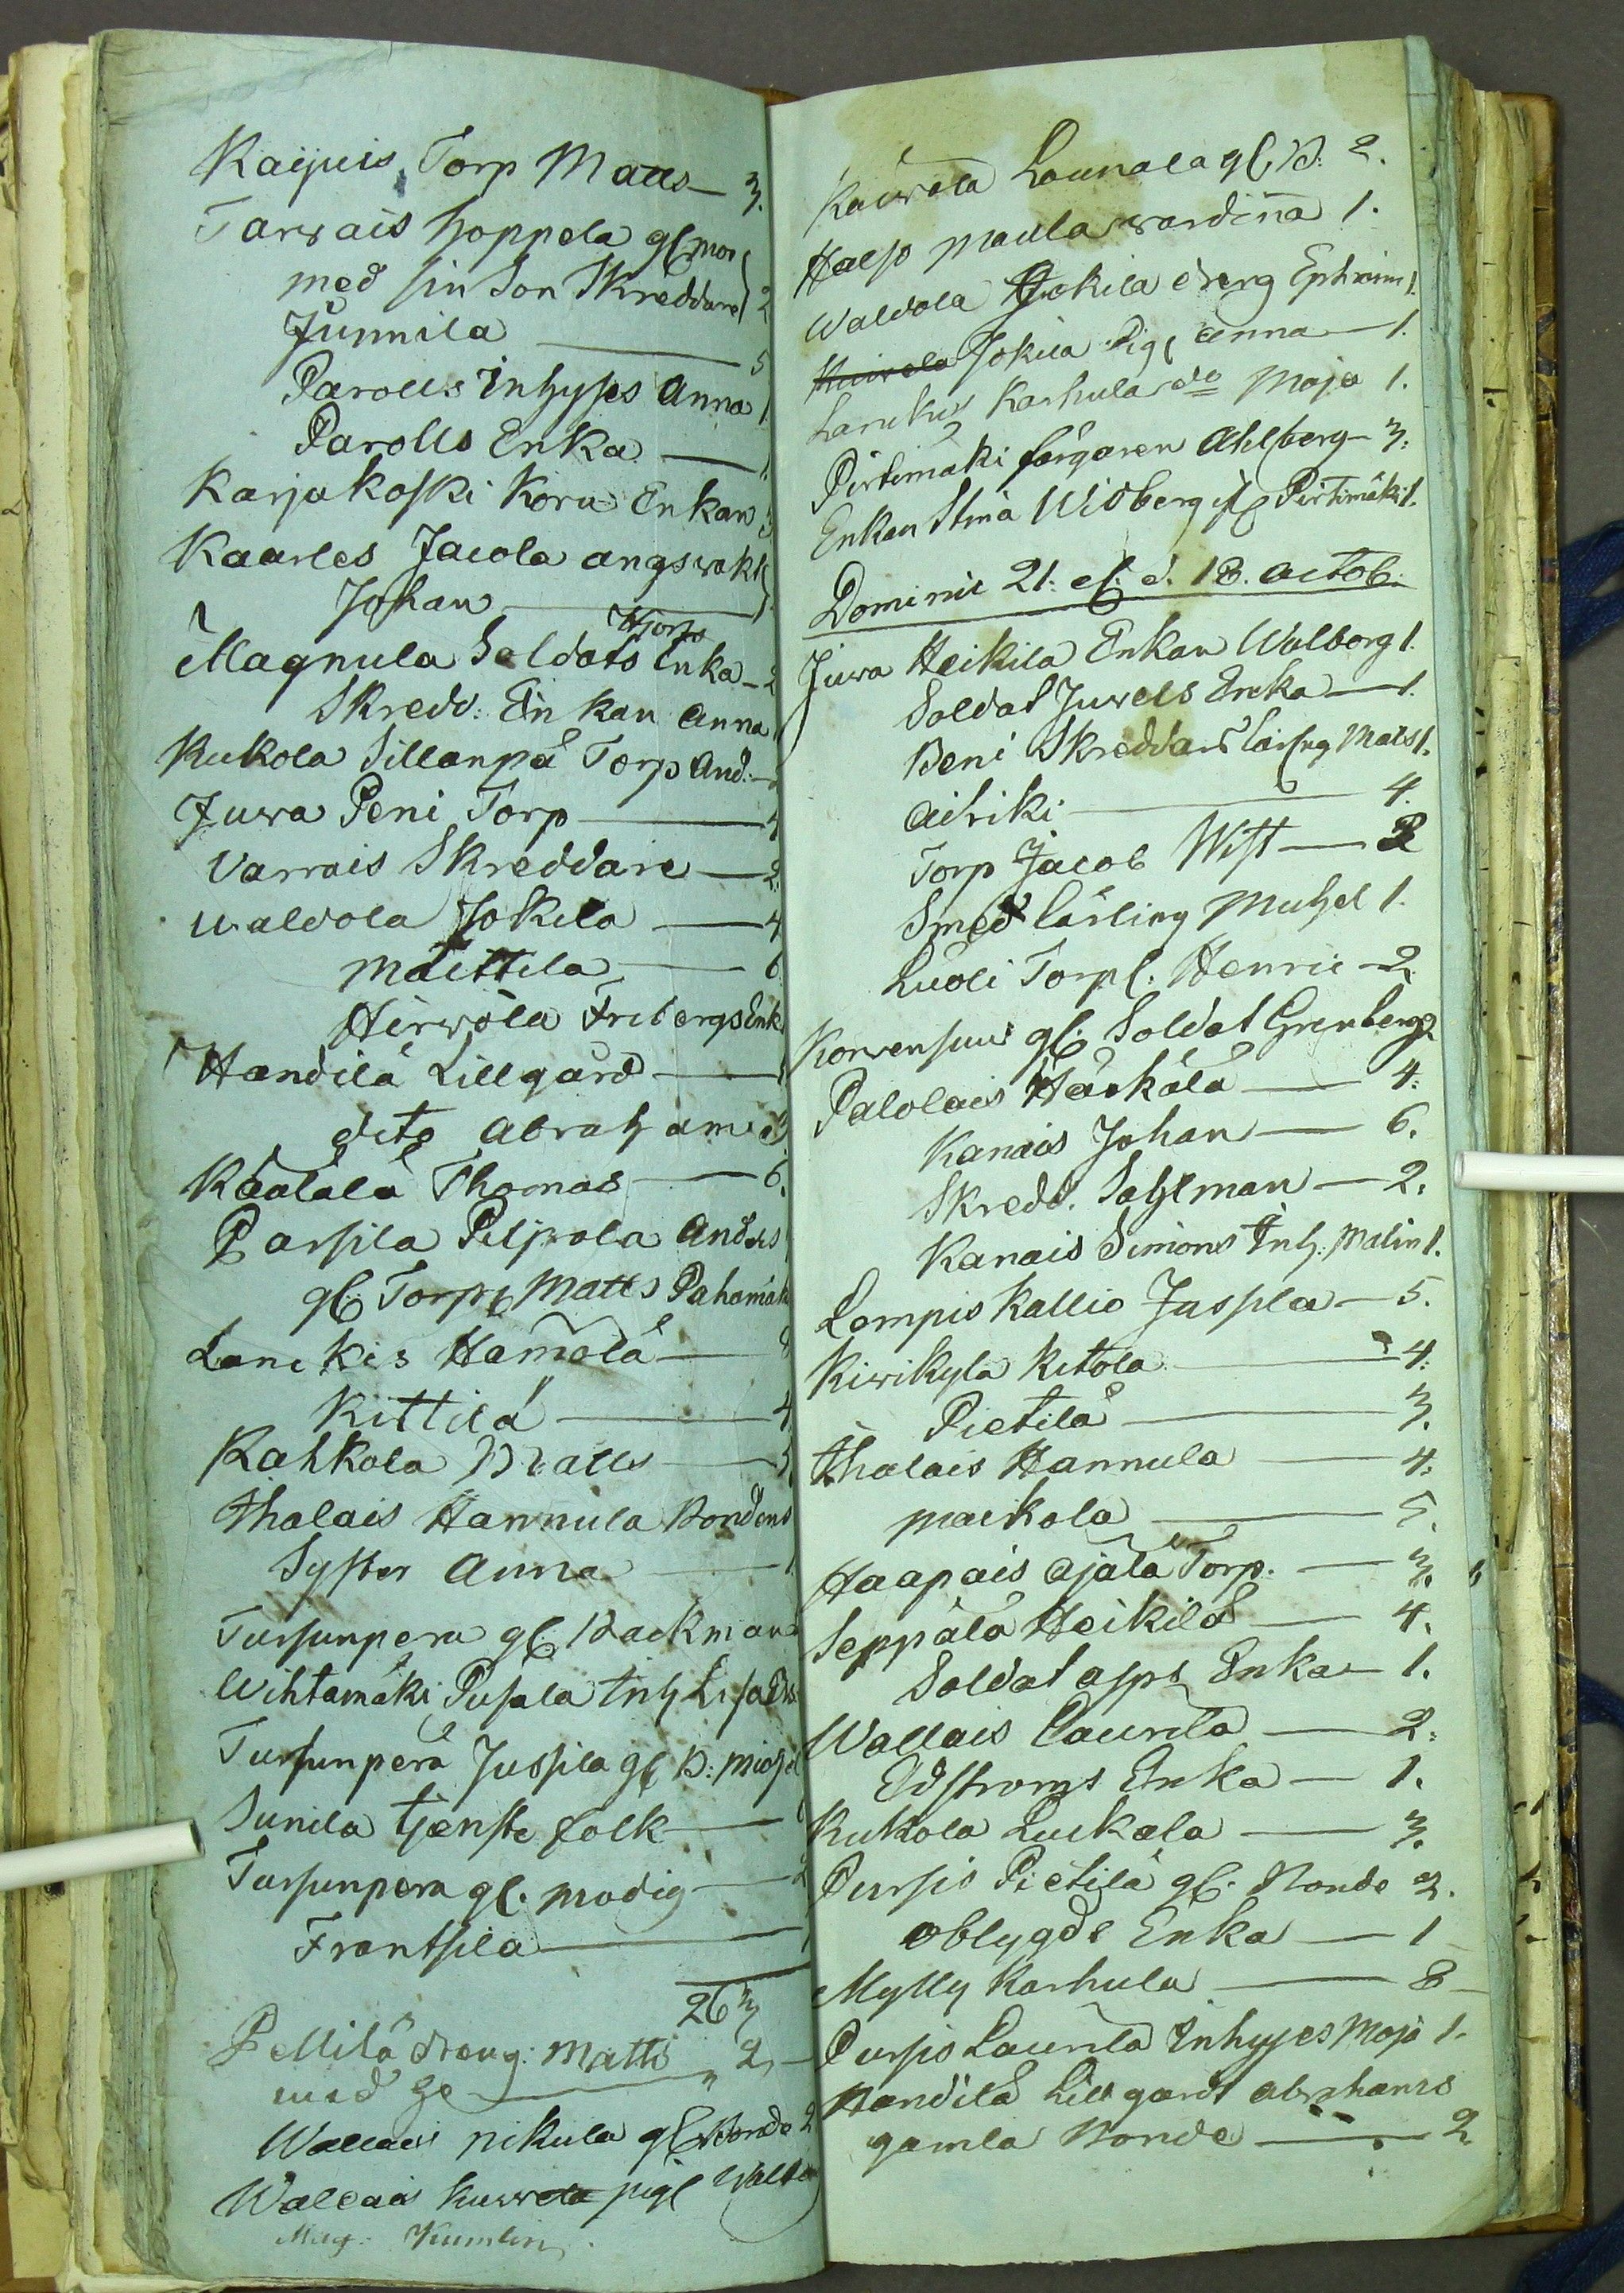 Kaijuis Torp Matts — 3.
Tarvais hoppela gl. mor
med sin Son Skreddare 2
Junnila — 5
Parolls Inhyses Anna 1
Parolls Enka — 1.
Karjakoski Koru Enkan 3
Kaarles Jacola angsvakt
Johan — 1.
Hjorts
Magnula Soldats Enka — 2
Skredd: Enkan Anna 1
Kukola Sillanpä Torp And. —
Juva Peni Torp — 4
Varrais Skreddare — 2.
Waldola Jokela — 4
Mäittilä — 6.
Hirvola Fribergs Enk.
Handilä Lillgård — 1
dito Abrahams 3
Käätälä Thomas — 6.
Parsila Piljvola Anders
gl. Torp. Matts Pahamäk
Lanckis Hamolä — 8
Kittilä — 4
Kahkola Matts — 5
Thalais Hannula Bondens
Syster Anna — 1.
Tursunpera gl. Backman 2
Wihtamäki Pusala Inh. Lisa
Tursunperä Jussila gl. B: Michel
Sunila tjenste folk —
Tursunpera gl. Modig — 2
Frantsila — 1
263
Pellilä dreng: Matti „ 2, —
med he — „
Wallais Nikula gl. Bonde 2
Wallais Kuvvela pigl Walb
Mag. Kumlin.
Kauvola Lounala gl. B. 2.
Halso Maula wardinna 1.
Waldola Jokila dreng Ephraim 1.
Kuivela Jokila Pig. Anna — 1.
Lanckis Karhula do Maja 1.
Pirtimäki färgaren Ahlberg — 3.
Enkan Stina Widberg ifr. Pirtimäki 1.
Dominic 21. ef. d. 18. octob.
Juva Heikila Enkan Walborg 1.
Soldat Juvels Enka — 1.
Beni Skreddars lärling Mats 1.
Aitiki — 4.
Torp Jacob Wist — 2
Smed lärling Michel 1.
Luoli Torp. Henric — 2
Korvensuu gl. Soldat Grenberg 2
Palolais Häckälä — 4.
Kanais Johan — 6.
Skredd. Sahlman — 2.
Kanais Simons Inh: Malin 1.
Lempis Kallio Juspla — 5.
Kirikyla Kitola — 4.
Pietilä — 3.
Thalais Hannula — 4.
Markola — 5.
Haapais Ajala Torp. — 3.
Seppälä Heikilä — 4.
Soldat asps Enka — 1.
Wallais Laurila — 2.
Edströms Enka — 1.
Kukola Luckala — 3.
Pursis Pietilä gl. Bonde 2.
oblygde Enka — 1
Mylly Karhula — 8 —
Pursis Laurila Inhyses Maja 1.
Handilä Lillgårdt Abrahams
gamla Bonde — 2